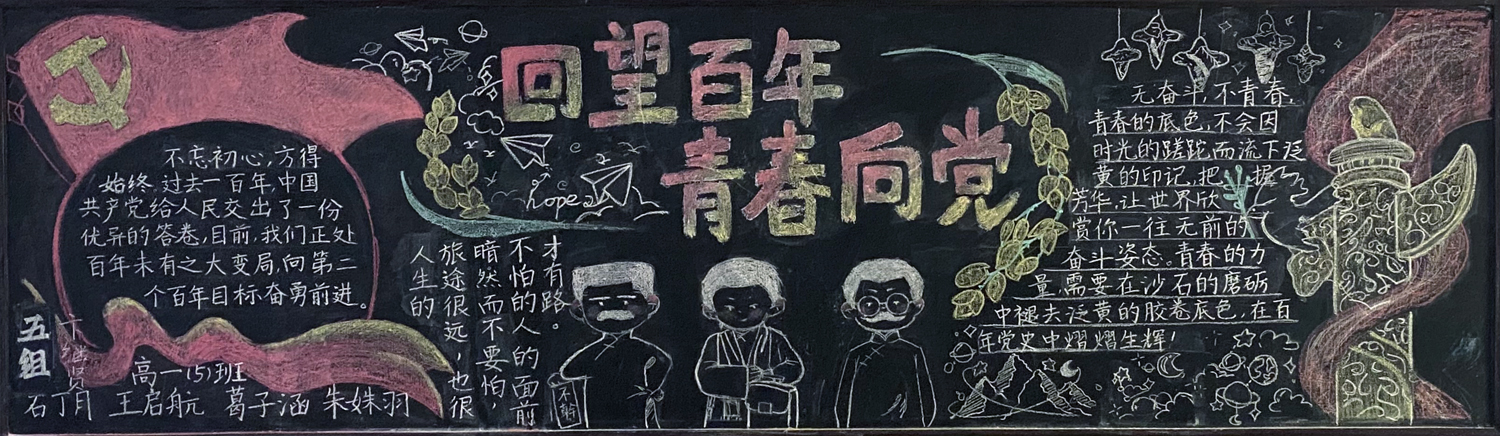 回望百年
青春向党
不忘初心,方得
始终,过去一百年,中国
共产党给人民交出了一份
优异的答卷,目前,我们正处
百年未有之大变局,向第二
个百年目标奋勇前进。
五组
高一(5)班
石丁月 王启航 葛子涵 朱姝羽
hope
人生的
旅途很远,也很
暗然而不要怕,
不怕的人的面前
才有路。
无奋斗,不青春,
青春的底色,不会因
时光的蹉跎,而流下泛
黄的印记,把握
芳华,让世界欣
赏你一往无前的
奋斗姿态。青春的力
量,需要在沙石的磨砺
中褪去泛黄的胶卷底色,在百
年党史中熠熠生辉!